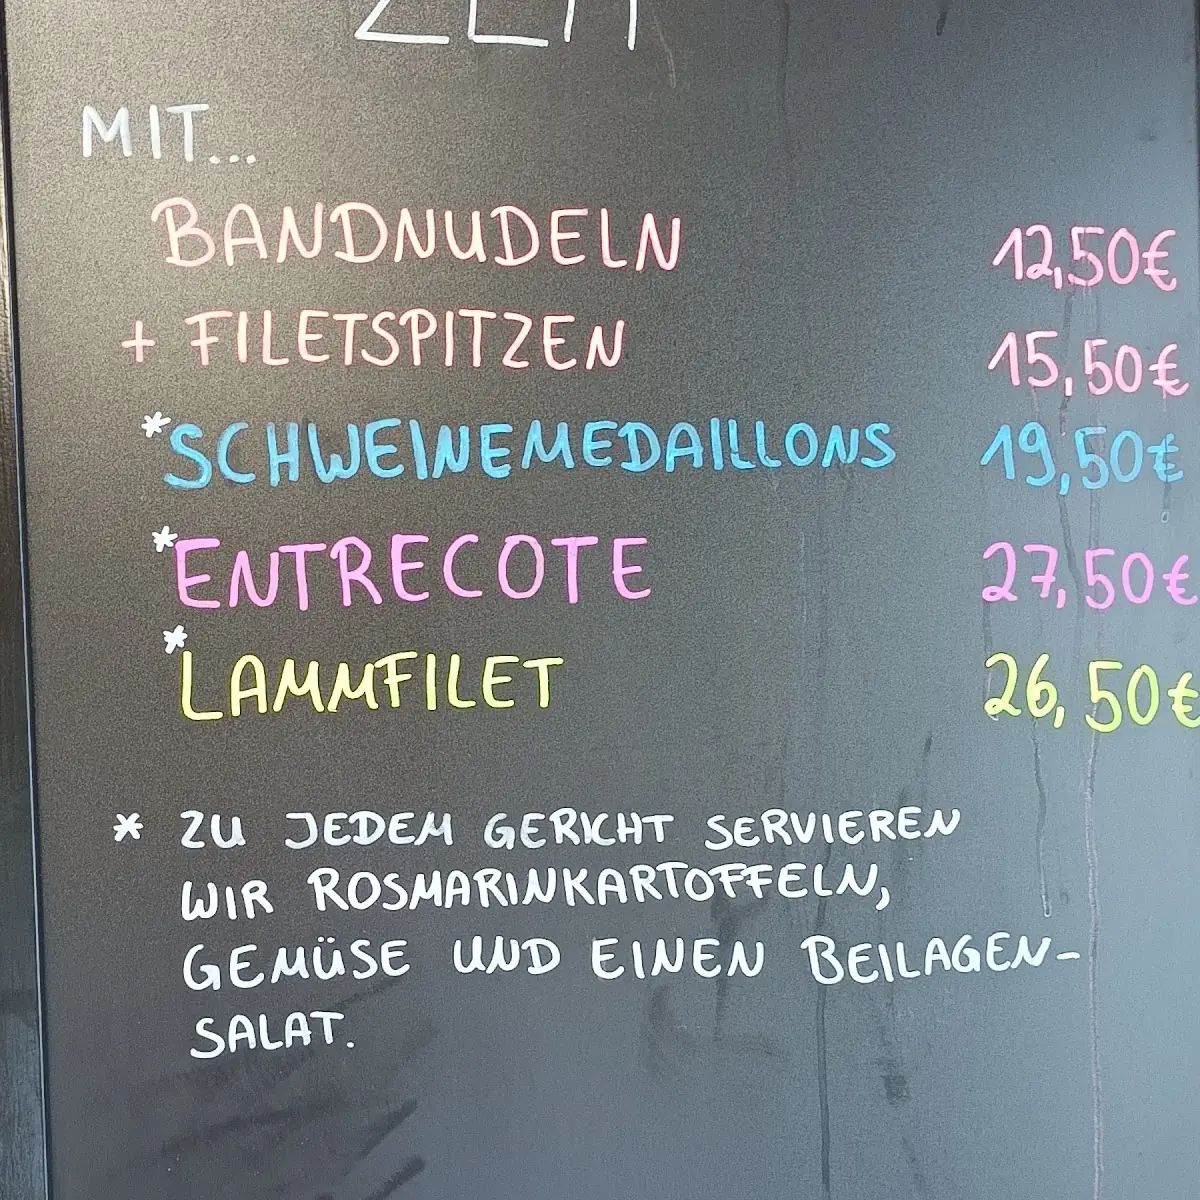 MIT...
BANDNUDELN 12,50€
+ FILETSPITZEN 15,50€
*SCHWEINEMEDAILLONS 19,50€
*ENTRECOTE 27,50€
*LAMMFILET 26,50€
* ZU JEDEM GERICHT SERVIEREN
WIR ROSMARINKARTOFFELN,
GEMÜSE UND EINEN BEILAGEN-
SALAT.